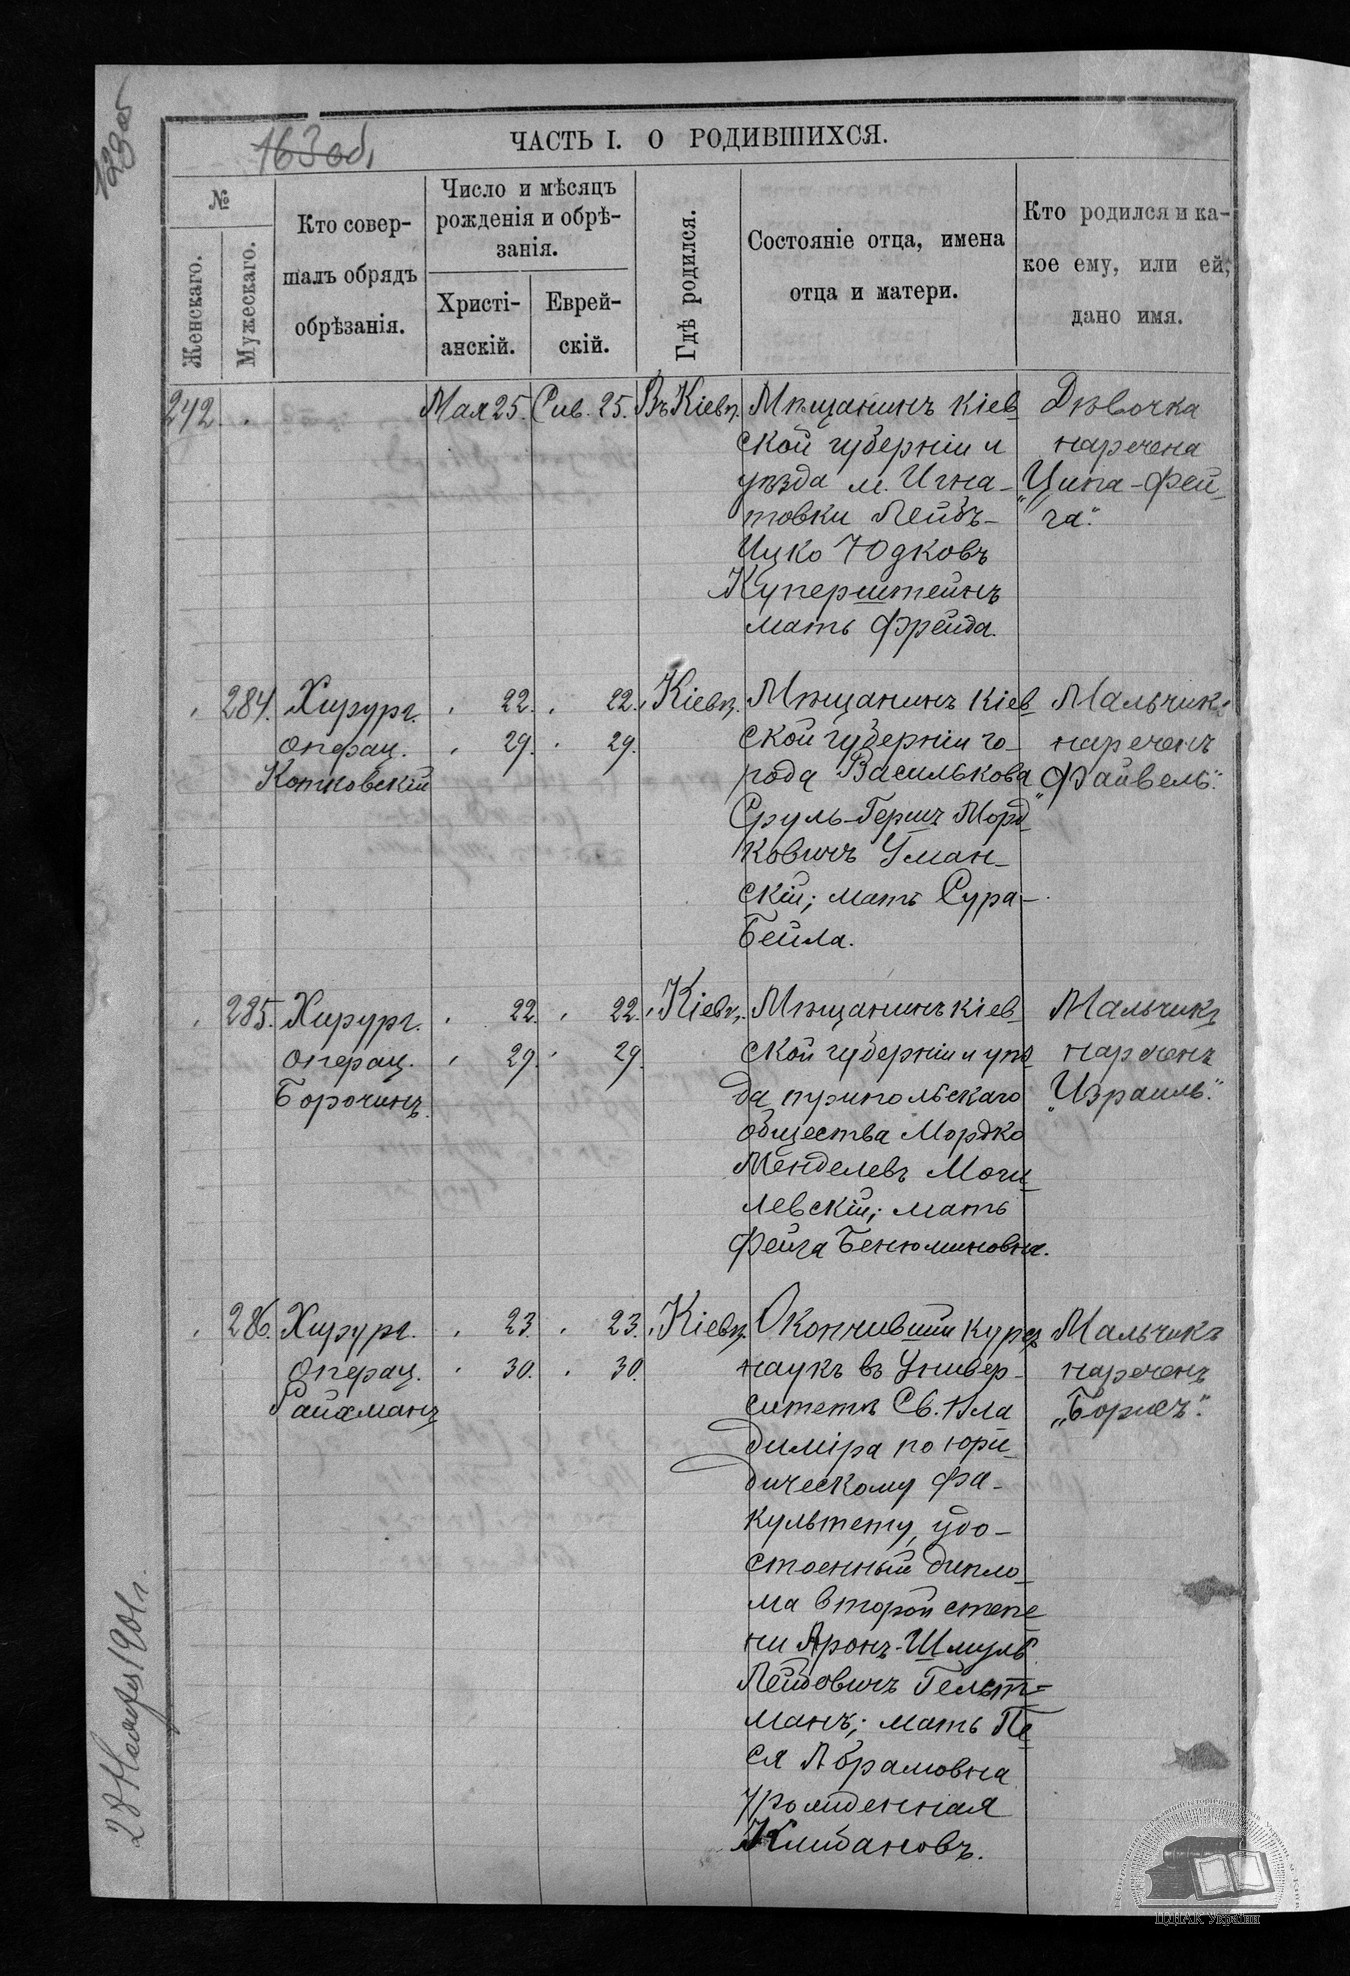 163 об.
ЧАСТЬ I. О РОДИВШИХСЯ.
№
Женскаго.
Мужескаго.
Кто совер-
шалъ обрядъ
обрѣзанія.
Число и мѣсяцъ
рожденія и обрѣ-
занія.
Христі-
анскій.
Еврей-
скій.
Гдѣ родился.
Состояніе отца, имена
отца и матери.
Кто родился и ка-
кое ему, или ей,
дано имя.
242
Мая 25.
Сив. 25.
Въ Кіевѣ.
Мѣщанинъ Кіев
ской губерніи и
уѣзда м. Игна-
товки Лейбъ-
Ицко Юдковъ
Куперштейнъ
мать Фрейда.
Дѣвочка
наречена
"Ципа-Фей
га".
284.
Хирург.
операц.
Котковскій
22.
29.
22.
29.
Кіевѣ.
Мѣщанинъ Кіев-
ской губерніи го-
рода Василькова
Сруль-Гершъ Морд
ковичъ Уман-
скій; мать Сура-
Бейла.
Мальчикъ
нареченъ
"Файвель".
285.
Хирург.
операц.
Борочинъ.
22.
29.
22.
29.
Кіевѣ.
Мѣщанинъ Кіев-
ской губерніи и уѣз
да, трипольскаго
общества Мордко
Менделевъ Моги-
левскій; мать
Фейга Бенюминовна.
Мальчикъ
нареченъ
"Израиль".
286.
Хирург.
Операц.
Райхманъ
23.
30.
23.
30.
Кіевѣ.
Окончившій курсъ
наукъ въ Универ-
ситетѣ Св. Вла
диміра по юри-
дическому фа-
культету, удо-
стоенный дипло-
ма второй степе
ни Аронъ-Шмуль
Лейбовичъ Гельт-
манъ; мать Пе-
ся Абрамовна
урожденная
Клибановъ.
Мальчикъ
нареченъ
„Борисъ".
ЦДІАК України